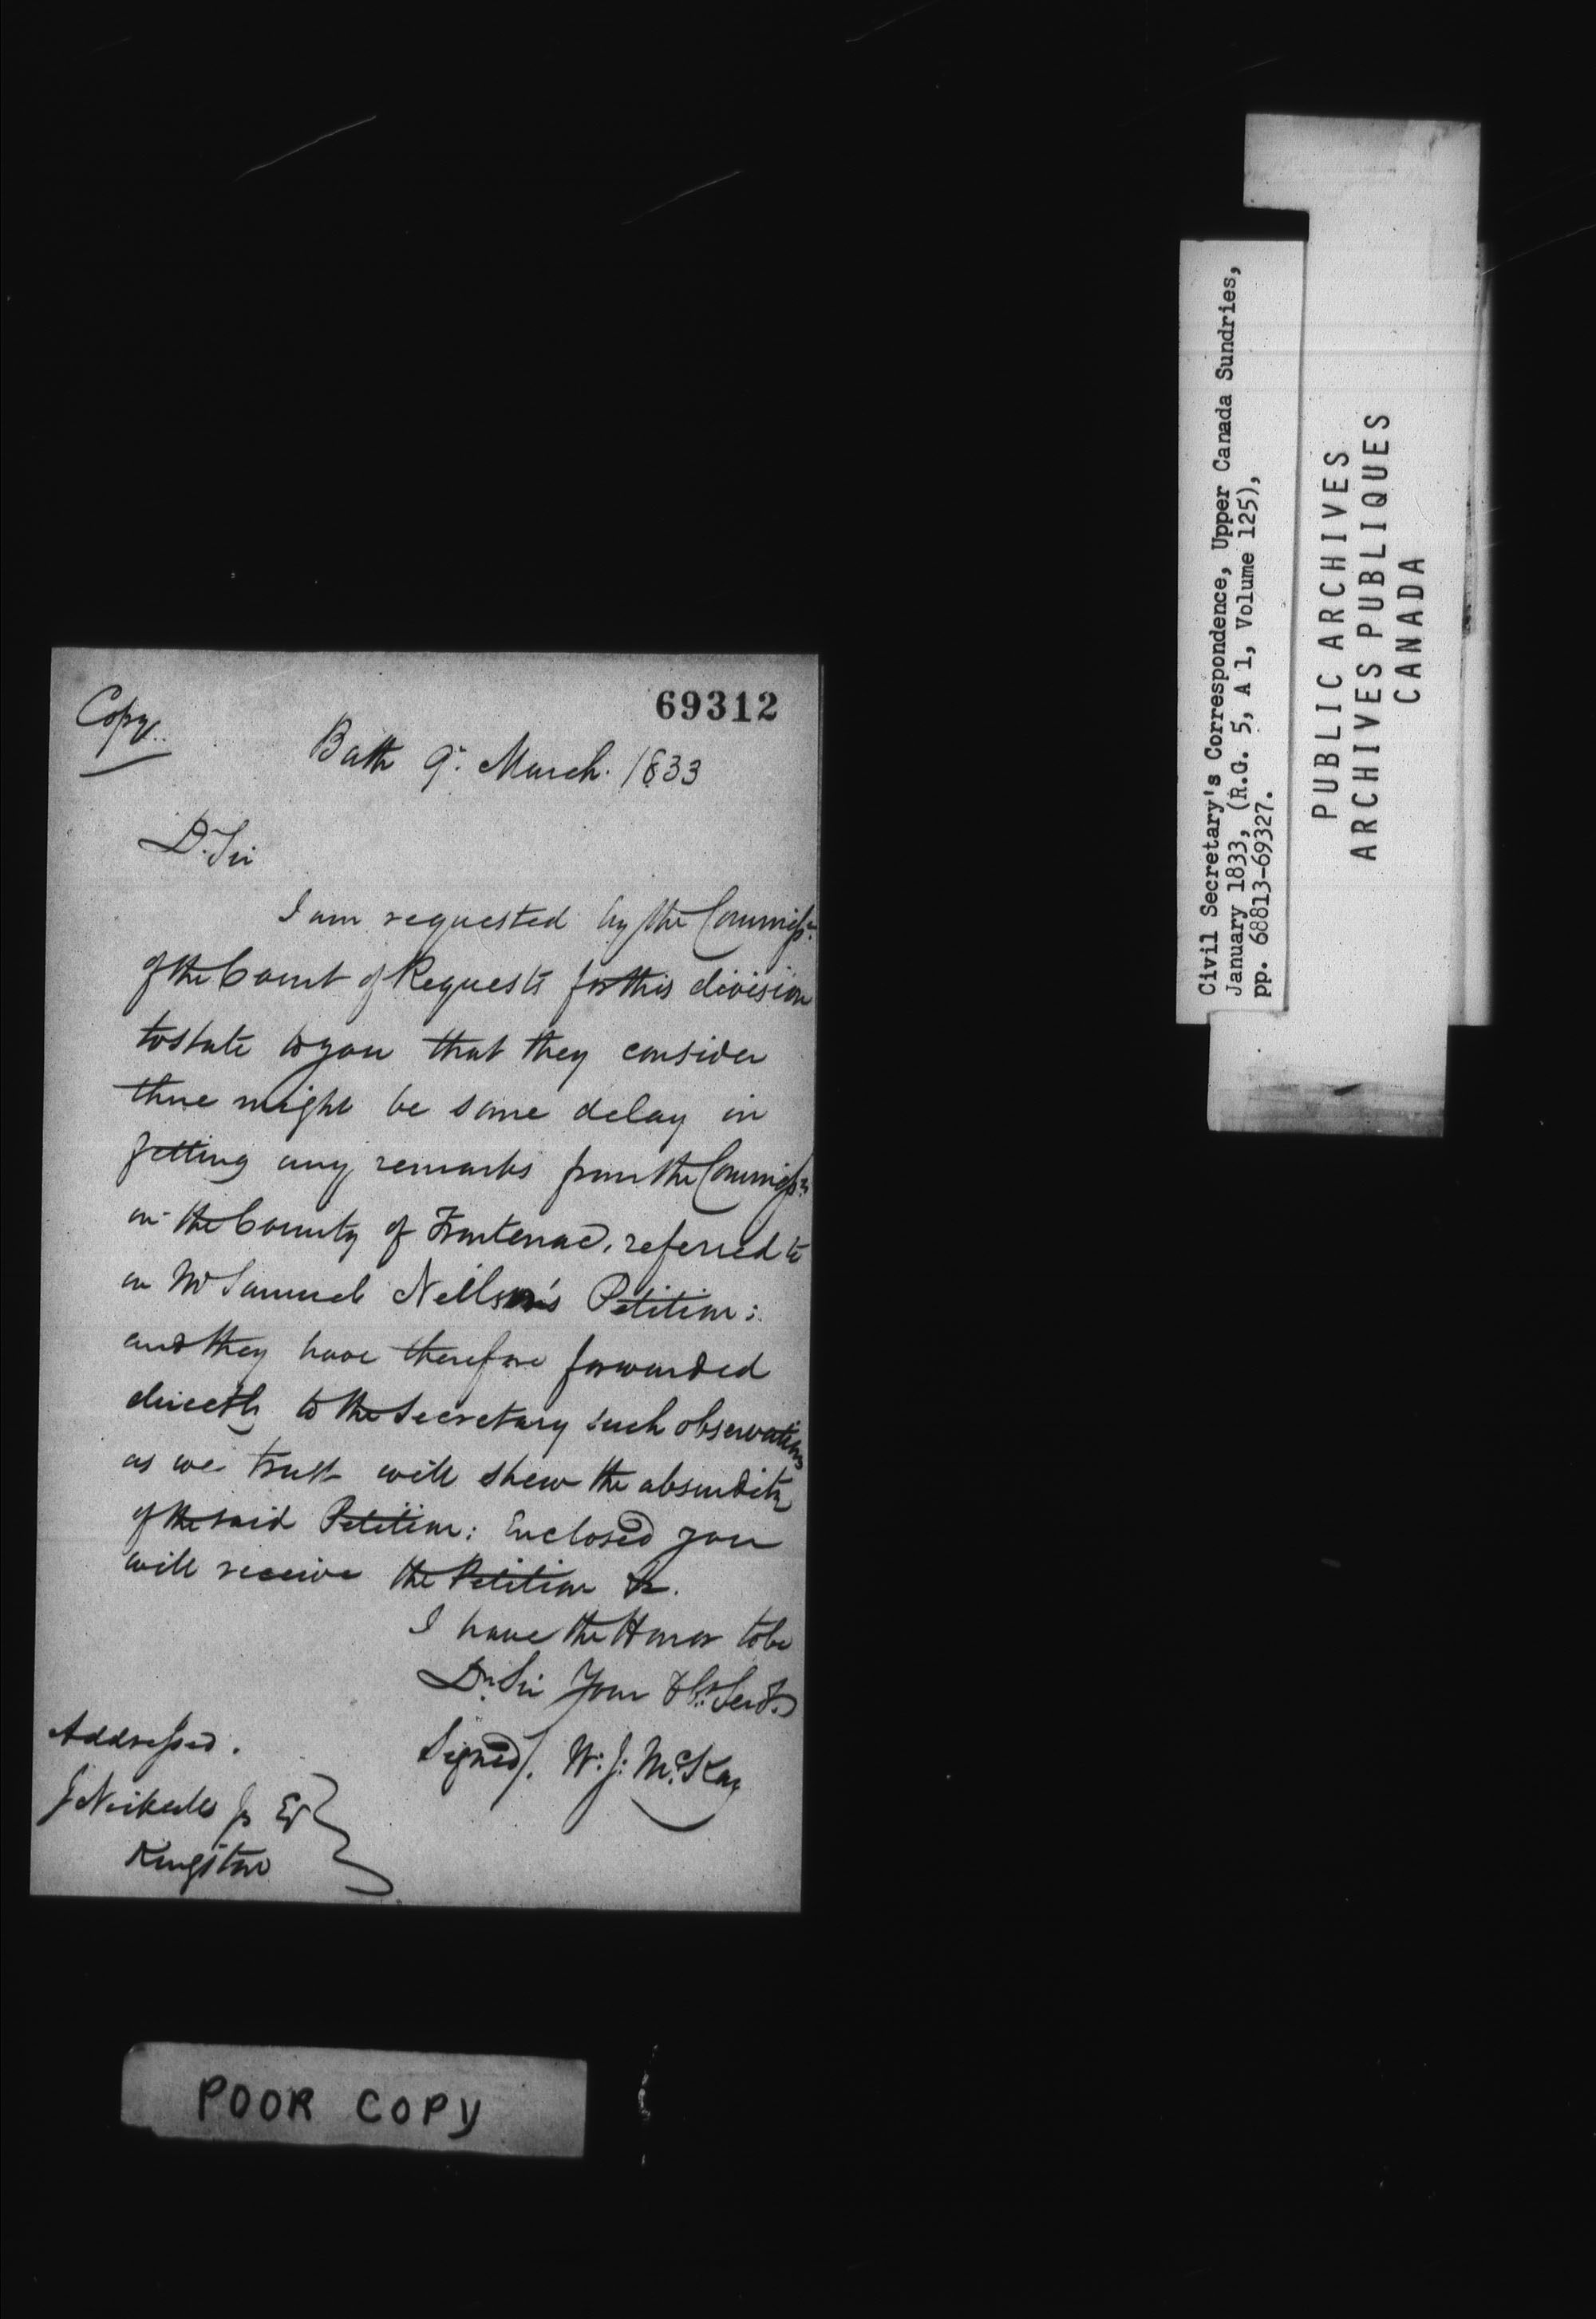 Copy
69312
Bath 9. March. 1833
Dr. Sir
I am requested by the Commissrs.
of the Court of Requests for this division
to state to you that they consider
there might be some delay in
getting any remarks from the Commissrs.
in the County of Frontenac, referred to
in Mr Samuel Neilson's Petition:
and they have therefore forwarded
directly to the Secretary such observations
as we trust will shew the absurdity
of the said Petition: Enclosed you
will receive the Petition &c.
I have the Honor to be
Dr. Sir Your Obt. Servt.
Signed/. W. J. McKay
Addressed.
J Nickalls Jr Esq
Kingston
POOR COPY
Civil Secretary's Correspondence, Upper Canada Sundries,
January 1833, (R.G. 5, A 1, Volume 125),
pp. 68813-69327.
PUBLIC ARCHIVES
ARCHIVES PUBLIQUES
CANADA